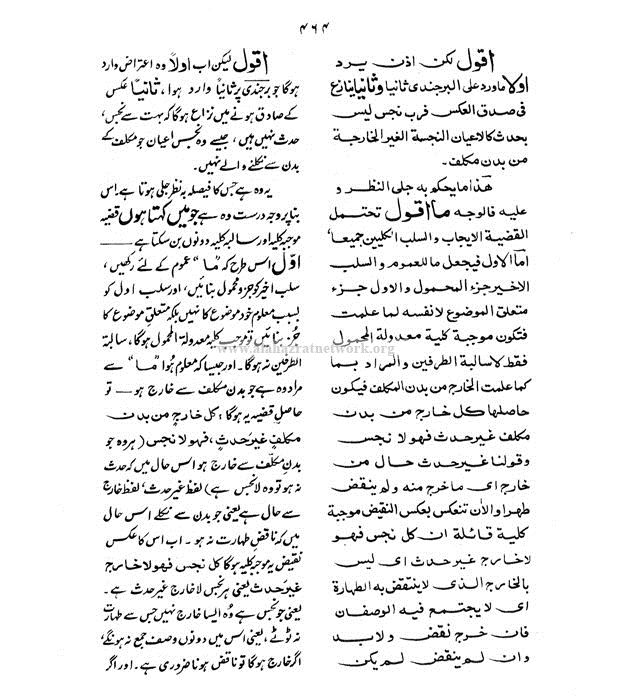 ۴۶۴
اقول لکن اذن یرد
اولا ماورد علی البرجندی ثانیا وثانیاینازع
فی صدق العکس فرب نجس لیس
بحدث کالاعیان النجسة الغیر الخارجة
من بدن مکلف۔
هذا مایحکم به جلی النظر و
علیه فالوجه مااقول تحتمل
القضیة الایجاب والسلب الکلیین جمیعا،
اما الاول فیجعل ما للعموم والسلب
الاخیر جزء المحمول والاول جزء
متعلق الموضوع لانفسه لما علمت
فتکون موجبة کلیة معدولة المحمول
فقط لاسالبة الطرفین والمراد بما
کما علمت الخارج من بدن المکلف فیکون
حاصلها کل خارج من بدن
مکلف غیرحدث فهو لا نجس
وقولنا غیرحدث حال من
خارج ای ماخرج منه ولم ینقض
طهرا والاٰن تنعکس بعکس النقیض موجبة
کلیة قائلة ان کل نجس فهو
لاخارج غیرحدث ای لیس
بالخارج الذی لاینتقض به الطهارة
ای لا یجتمع فیه الوصفان
فان خرج نقض ولابد
وان لم ینقض لم یکن
اقول لیکن اب اولاً وہ اعتراض وارد
ہوگا جو برجندی پر ثانیاً وارد ہوا، ثانیاً عکس
کے صادق ہونے میں نزاع ہوگا کہ بہت سے نجس،
حدث نہیں ہیں، جیسے وہ نجس اعیان جو مکلف کے
بدن سے نکلنے والے نہیں۔
یہ وہ ہے جس کا فیصلہ بہ نظر جلی ہوتا ہے اس
بنا پر وجہ درست وہ ہے جو میں کہتا ہوں قضیہ
موجبہ کلیہ اور سالبہ کلیہ دونوں بن سکتا ہے ــــــ
اول اس طرح کہ "ما" عموم کے لئے رکھیں،
سلب اخیر کو جزو محمول بنائیں، اور سلب اول کو
بسبب معلوم خود موضوع کا نہیں بلکہ متعلق موضوع کا
جُز بنائیں تو موجبہ کلیہ معدولة المحمول ہوگا، سالبة
الطرفین نہ ہوگا۔ اور جیسا کہ معلوم ہُوا "ما" سے
مراد وہ ہے جو بدن مکلف سے خارج ہو — تو
حاصل قضیہ یہ ہوگا: کل خارج من بدن
مکلف غیرحدث، فهو لا نجس (ہر وہ جو
بدنِ مکلّف سے خارج ہو اس حال میں کہ حدث
نہ ہو تو وہ لانجس ہے) لفظ غیر حدث، لفظ خارج
سے حال ہے یعنی جو بدن سے نکلے اس حال
میں کہ ناقضِ طہارت نہ ہو۔ اب اس کا عکس
نقیض یہ موجبہ کلیہ ہوگا کل نجس فهولاخارج
غیرحدث یعنی ہر نجس لا خارج غیر حدث ہے۔
یعنی جو نجس ہے وُہ ایسا خارج نہیں جس سے طہارت
نہ ٹوٹے، یعنی اس میں دونوں وصف جمع نہ ہونگے،
اگر خارج ہوگا تو ناقض ہونا ضروری ہے۔ اور اگر
www.alahazratnetwork.org